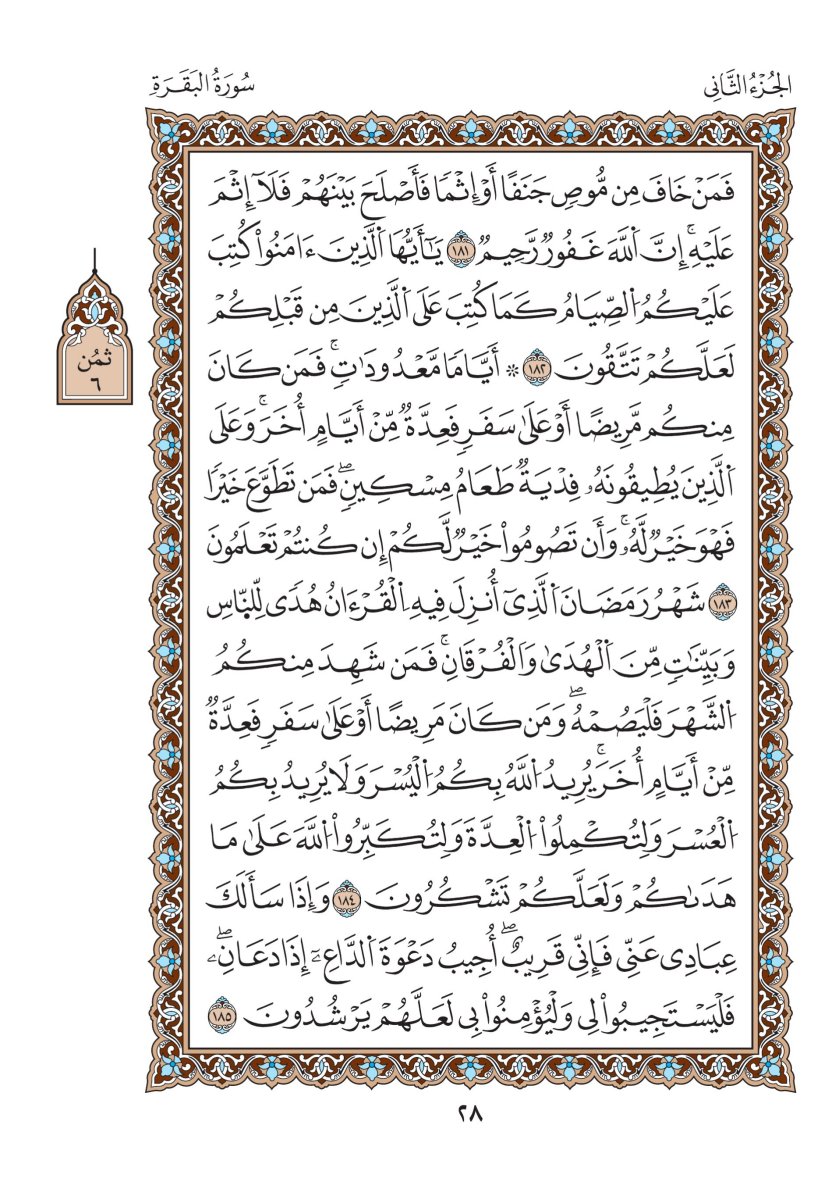 الجُزْءُ الثَّانِي
سُورَةُ البَقَرَةِ
فَمَنْ خَافَ مِن مُّوصٍ جَنَفًا أَوْ إِثْمًا فَأَصْلَحَ بَيْنَهُمْ فَلَآ إِثْمَ
عَلَيْهِۚ إِنَّ اَ۬للَّهَ غَفُورٌ رَّحِيمٌ ١٨١ يَٰٓأَيُّهَا اَ۬لَّذِينَ ءَامَنُواْ كُتِبَ
عَلَيْكُمُ اُ۬لصِّيَامُ كَمَا كُتِبَ عَلَى اَ۬لَّذِينَ مِن قَبْلِكُمْ
لَعَلَّكُمْ تَتَّقُونَ ١٨٢ ۞ أَيَّامًا مَّعْدُودَٰتٍۚ فَمَن كَانَ
مِنكُم مَّرِيضًا أَوْ عَلَىٰ سَفَرٍ فَعِدَّةٌ مِّنْ أَيَّامٍ أُخَرَۚ وَعَلَى
اَ۬لَّذِينَ يُطِيقُونَهُۥ فِدْيَةٌ طَعَامُ مِسْكِينٍۖ فَمَن تَطَوَّعَ خَيْرًا
فَهْوَ خَيْرٌ لَّهُۥۚ وَأَن تَصُومُواْ خَيْرٌ لَّكُمْ إِن كُنتُمْ تَعْلَمُونَ
١٨٣ شَهْرُ رَمَضَانَ اَ۬لَّذِىٓ أُنزِلَ فِيهِ اِ۬لْقُرْءَانُ هُدًى لِّلنَّاسِ
وَبَيِّنَٰتٍ مِّنَ اَ۬لْهُدَىٰ وَالْفُرْقَانِۚ فَمَن شَهِدَ مِنكُمُ
اُ۬لشَّهْرَ فَلْيَصُمْهُۖ وَمَن كَانَ مَرِيضًا أَوْ عَلَىٰ سَفَرٍ فَعِدَّةٌ
مِّنْ أَيَّامٍ أُخَرَۚ يُرِيدُ اُ۬للَّهُ بِكُمُ اُ۬لْيُسْرَ وَلَا يُرِيدُ بِكُمُ
اُ۬لْعُسْرَ وَلِتُكْمِلُواْ اُ۬لْعِدَّةَ وَلِتُكَبِّرُواْ اُ۬للَّهَ عَلَىٰ مَا
هَدَىٰكُمْ وَلَعَلَّكُمْ تَشْكُرُونَ ١٨٤ وَإِذَا سَأَلَكَ
عِبَادِى عَنِّى فَإِنِّى قَرِيبٌۖ أُجِيبُ دَعْوَةَ اَ۬لدَّاعِۦٓ إِذَا دَعَانِۦۖ
فَلْيَسْتَجِيبُواْ لِى وَلْيُؤْمِنُواْ بِى لَعَلَّهُمْ يَرْشُدُونَ ١٨٥
ثمُن
٦
٢٨